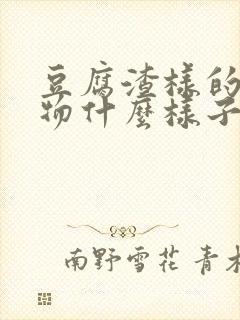 豆腐渣樣的
物什麼樣子
南野雪花 青木